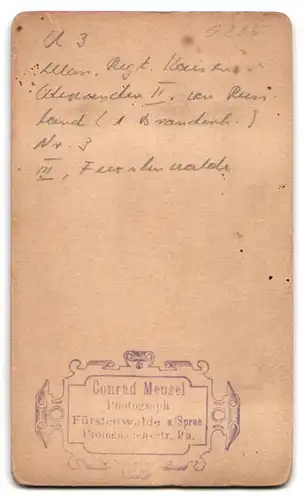 U 3
0205
Ulan. Regt. Kaiser
Alexander II. von Russ-
land (1. Brandenb.)
Nr. 3
III, Fürstenwalde
Conrad Menzel
Photograph
Fürstenwalde a/Spree
Promenadenstr. 9a.